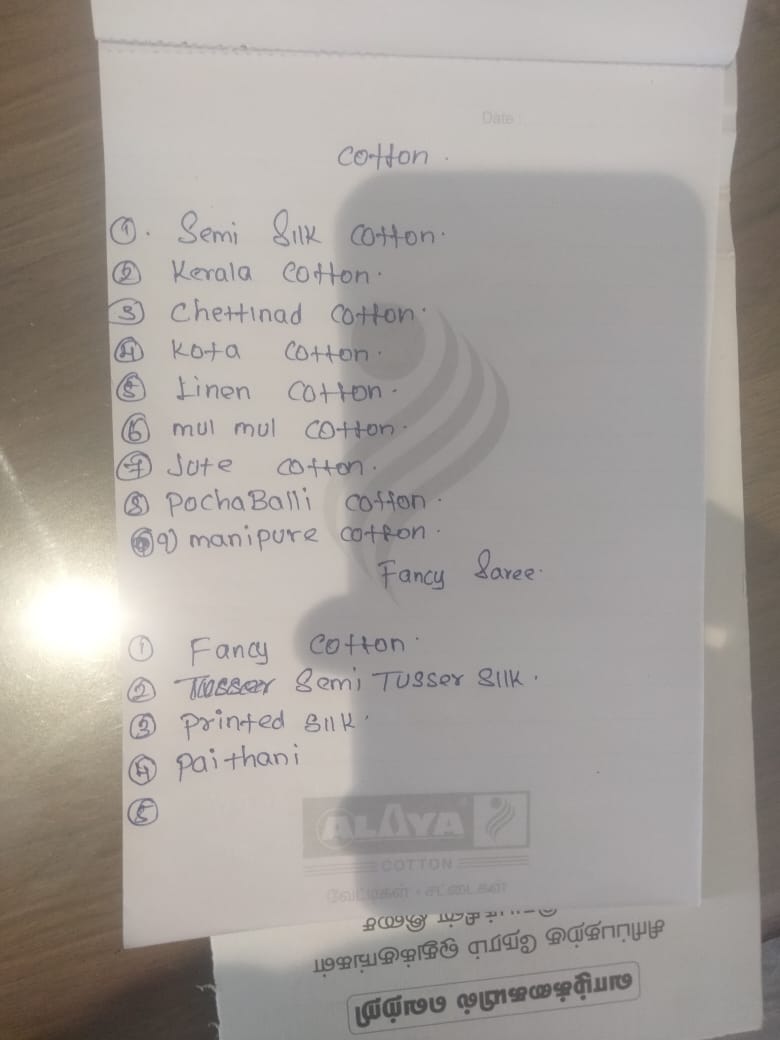 Date :
Cotton.
1. Semi Silk Cotton.
2 Kerala Cotton.
3 Chettinad Cotton.
4 Kota Cotton.
5 Linen Cotton.
6 mul mul Cotton.
7 Jute Cotton.
8 PochaBalli Cotton.
9) manipure Cotton.
Fancy Saree.
1 Fancy Cotton.
2 Tusser Semi Tusser Silk.
3 Printed Silk.
4 Paithani
5
ALAYA
COTTON
வேட்டிகள் • சட்டைகள்
சிரிப்பதற்கு நேரம் ஒதுக்குங்கள்
வாழ்க்கையில் வெற்றி